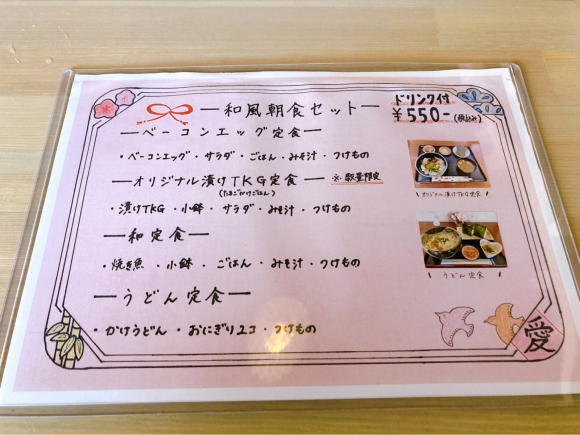 ―和風朝食セット―
ドリンク付
¥550-(税込み)
―ベーコンエッグ定食―
・ベーコンエッグ・サラダ・ごはん・みそ汁・つけもの
―オリジナル漬けTKG定食― ※数量限定
(たまごかけごはん)
・漬けTKG・小鉢・サラダ・みそ汁・つけもの
\オリジナル漬けTKG定食/
―和定食―
・焼き魚・小鉢・ごはん・みそ汁・つけもの
\うどん定食/
―うどん定食―
・かけうどん・おにぎり2コ・つけもの
愛